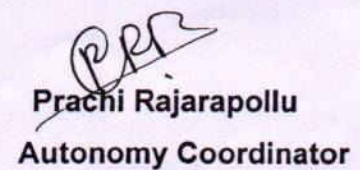 Prachi Rajarapollu
Autonomy Coordinator